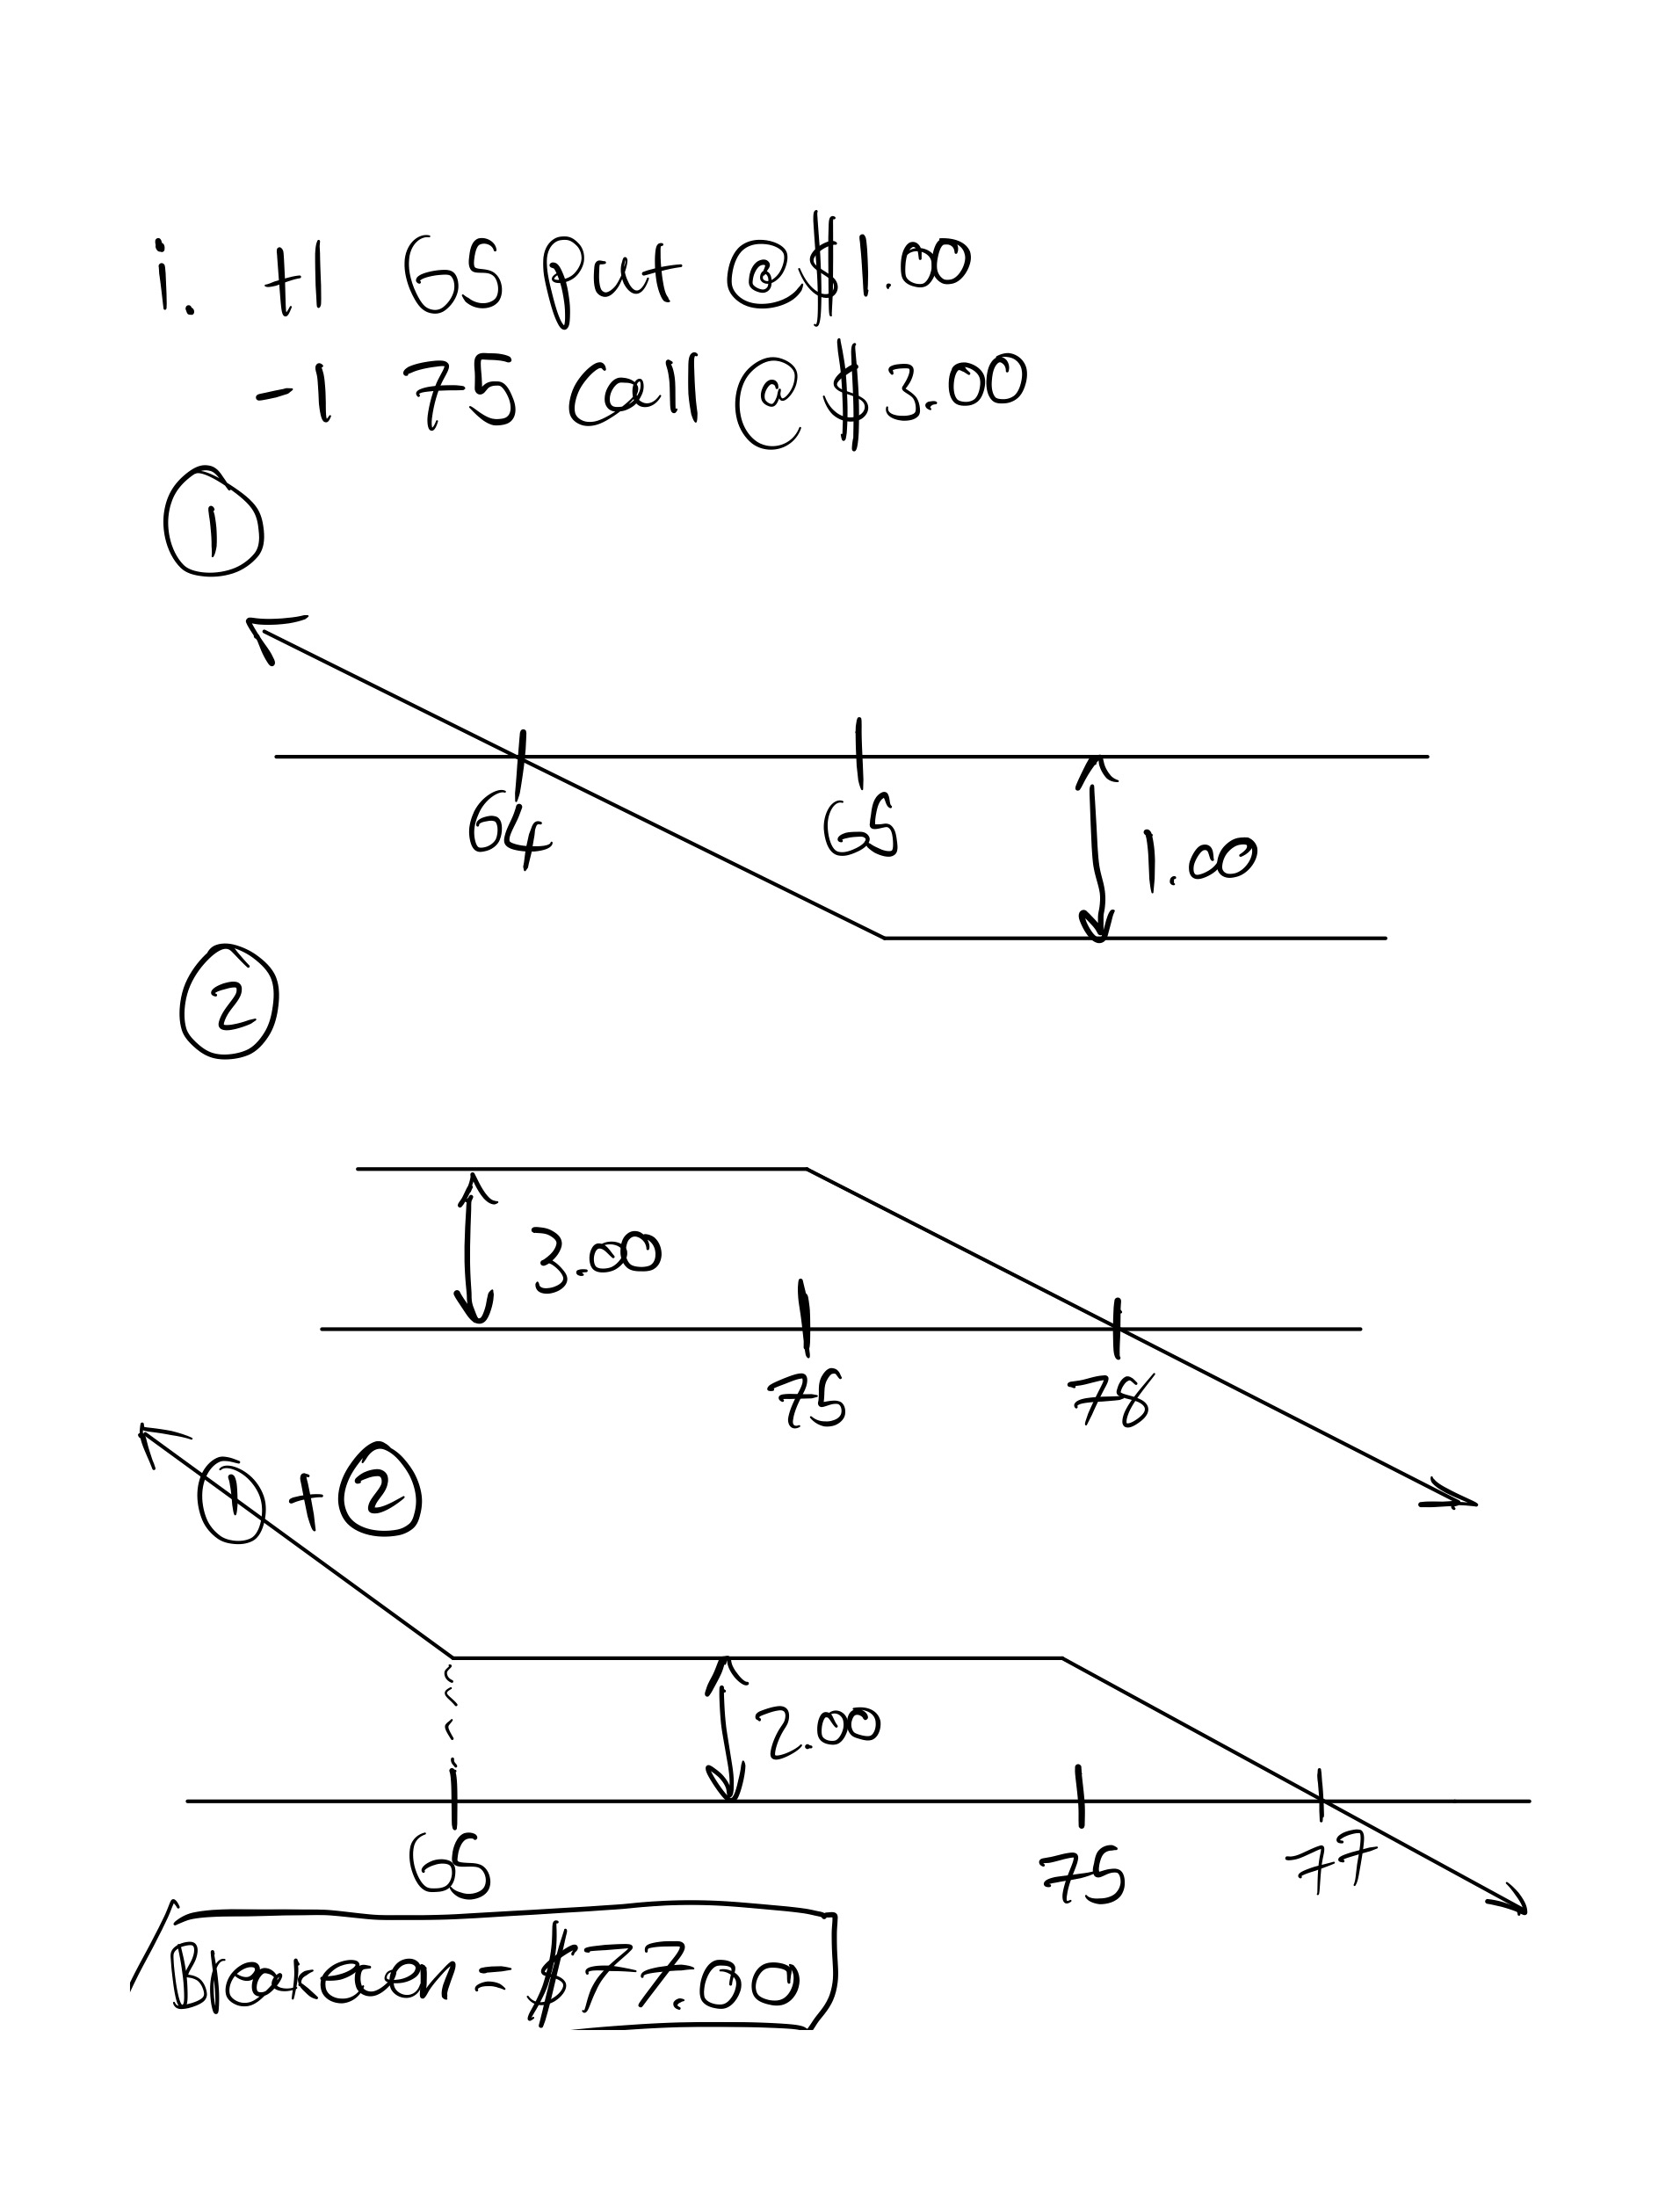 i. +1 65 put @ $1.00
-1 75 call @ $3.00
1
64 65 1.00
2
3.00
75 78
1 + 2
2.00
65 75 77
Breakeven = $77.00